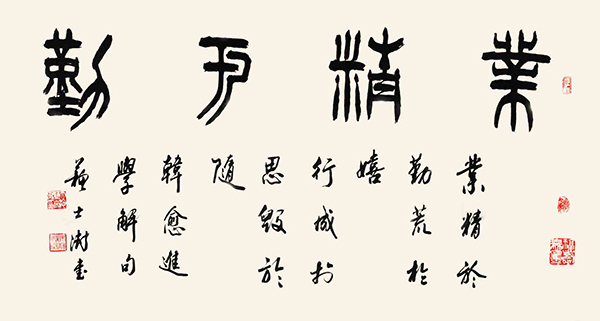 業精于勤
業精於
勤荒於
嬉
行成於
思毀於
隨
韓愈進
學解句
蘇士澍書